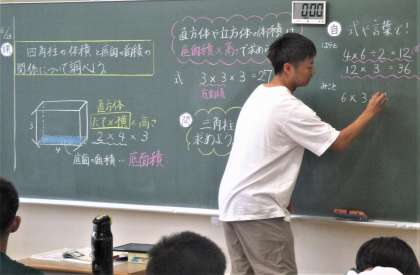 四角柱の体積と底面の面積の
関係について調べよう。
直方体
たて×横×高さ
2×4×3
底面の面積…底面積
4
直方体や立方体の体積は
底面積×高さで求め
式 3×3×3=27
底面積
三角柱
求めよう。
00
自 式や言葉で
4×6÷2=12
12×3=36
みこと
6×3